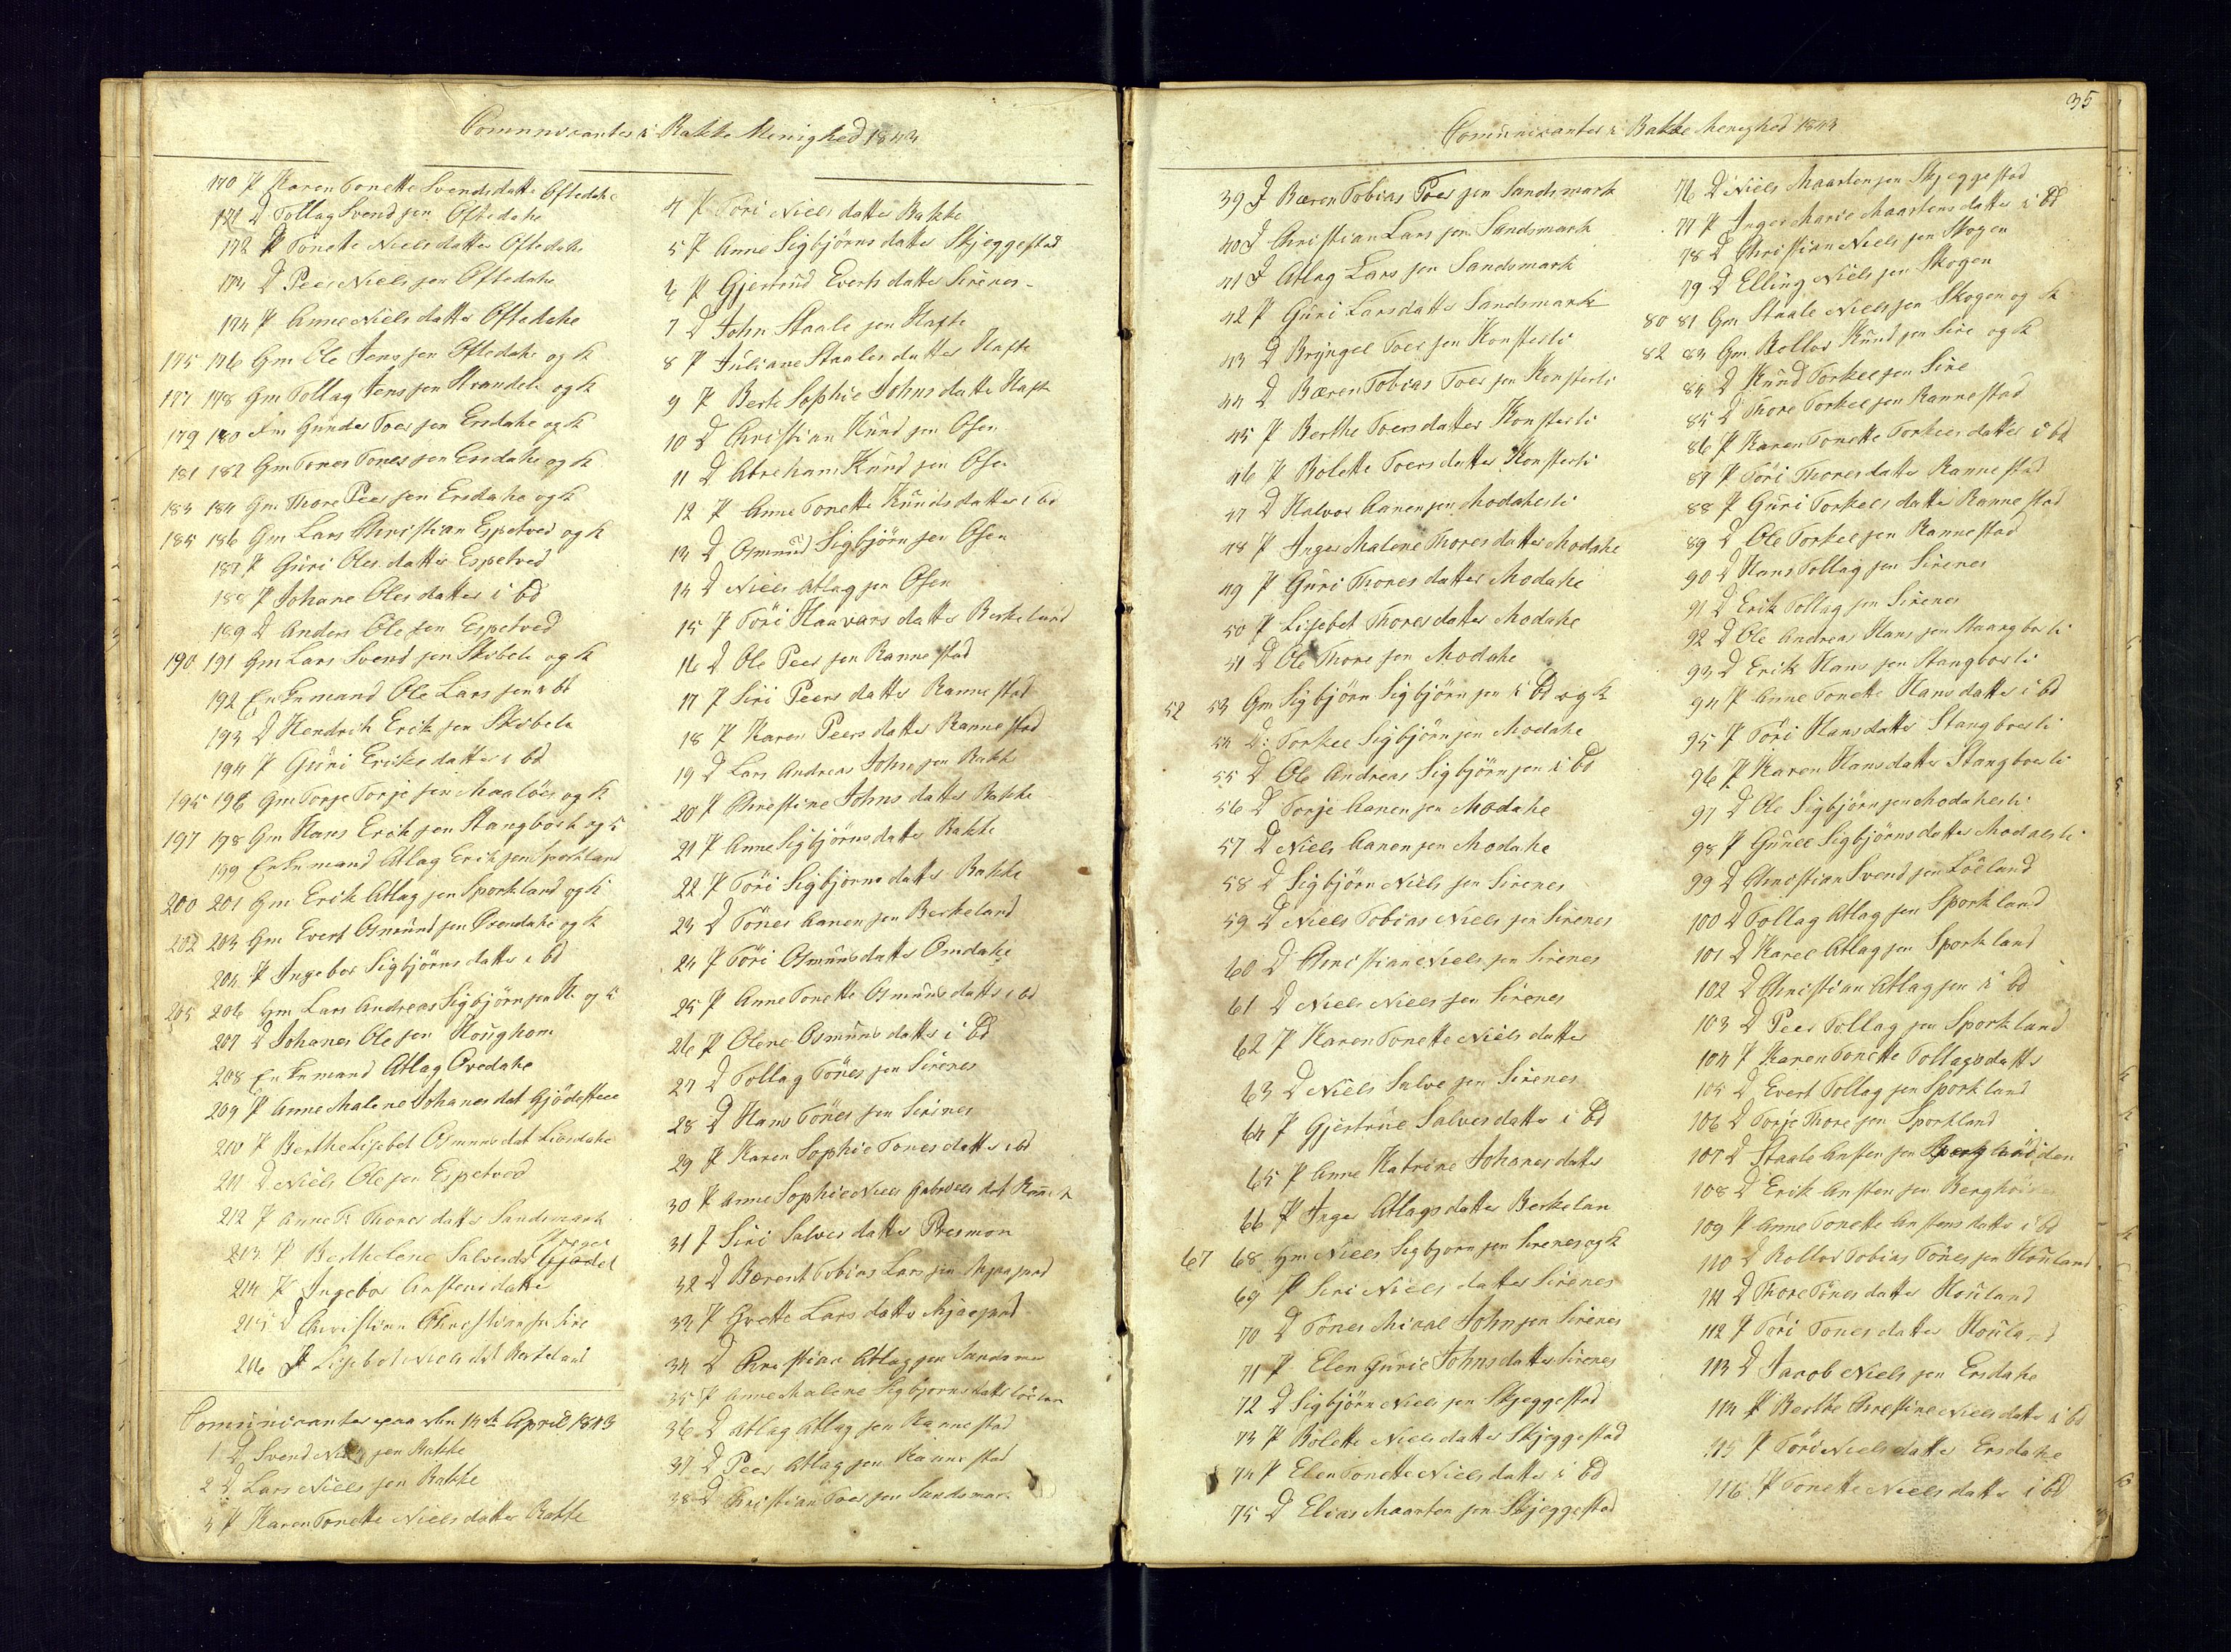 Comunicanter i Bakke Menighed 1843
170 P Karen Tonette Svendsdatter Oftedahe
171 D Tollag Svend sen Oftedahe
172 P Tonette Nielsdatter Oftedahe
173 D Peer Niels sen Oftedahe
174 P Anne Nielsdatter Oftedahe
175 176 Gm Ole Jens sen Oftedahe og k
177 178 Gm Tollag Jens sen Strandeli og k
179 180 Gm Gunder Toer sen Ersdahe og k
181 182 Gm Tones Tones sen Ersdahe og k
183 184 Gm Thore Peer sen Ersdahe og k
185 186 Gm Lars Christian Espetved og k
187 P Guri Oles datter Espetved
188 P Johane Oles datter i bd
189 D Anders Ole sen Espetved
190 191 Gm Lars Svend sen Skibeli og k
192 Enkemand Ole Lars sen i bd
193 D Hendrik Erik sen Skibeli
194 P Guri Eriks datter i bd
195 196 Gm Torje Torje sen Maaløe og k
197 198 Gm Hans Erik sen Stangborli og k
199 Enkemand Atlag Erik sen Sporkland
200 201 Gm Erik Atlag sen Sporkland og k
202 203 Gm Evert Osmund sen Ovendahe og k
204 P Ingebor Sigbjörns datter i bd
205 206 Gm Lars Andreas Sigbjörn sen og k
207 D Johanes Ole sen Houghom
208 Enkemand Atlag Ovedahe
209 P Anne Malene Johanes dat Gjödesteee
210 P Berthe Lisebet Osmuns dat Liosdahe
211 D Niels Ole sen Espetved
212 P Anne T. Thores datter Sandsmark
213 P Berthe Lene Salvesda Gjødel
214 P Ingebor Anstens datter
215 D Christian Christian sen Sire
216 P Lisebet Niels dat Berkeland
Comunicanter paa den 13de April 1843
1 D Svend Niels sen Bakke
2 D Lars Niels sen Bakke
3 P Karen Tonette Niels datter Bakke
4 P Töri Niels datter Bakke
5 P Anne Sigbjörns datter Skjeggestad
6 P Gjertrud Everts datter Sirenes
7 D John Staale sen Hafte
8 P Juliane Staales datter Hafte
9 P Berte Sophie Johns datter Hafte
10 D Christian Knud sen Osen
11 D Abraham Knud sen Osen
12 P Anne Tonette Knuds datter i bd
13 D Osmund Sigbjörn sen Osen
14 D Niels Atlag sen Osen
15 P Töri Haavars datter Berkeland
16 D Ole Peer sen Rannestad
17 P Siri Peers datter Rannestad
18 P Karen Peers datter Rannestad
19 D Lars Andreas John sen Bakke
20 P Christine Johns datter Bakke
21 P Anne Sigbjörns datter Bakke
22 P Töri Sigbjorns datter Bakke
23 D Tönes Aanen sen Berkeland
24 P Töri Osmuns datter Omdahe
25 P Anne Tonette Osmuns datter i bd
26 P Olene Osmuns datter i bd
27 D Tollag Tönes sen Sirenes
28 D Hans Tönes sen Sirines
29 P Karen Sophie Tones datter i bd
30 P Anne Sophie Niels Gabriels dat
31 P Siri Salves datter Presmon
32 D Berent Tobias Lars sen
33 P Grette Lars datter
34 D Christian Atlag sen Sandsmar
35 P Anne Malene Sigbjorns datter
36 D Atlag Atlag sen Rannestad
37 D Peer Atlag sen Rannestad
38 D Christian Toer sen Sandsmar
35
Comunicanter i Bakke Menighed 1843
39 D Bæren Tobias Toer sen Sandsmark
40 D Christian Lars sen Sandsmark
41 D Atlag Lars sen Sandsmark
42 P Guri Larsdatter Sandsmark
43 D Bryngel Toer sen Konsterli
44 D Bæren Tobias Toer sen Konsterli
45 P Berthe Toers datter Konsterli
46 P Bolette Toers datter Konsterli
47 D Halvor Aanen sen Modahesli
48 P Inger Malene Thores datter Modahe
49 P Guri Thores datter Modahe
50 P Lisebet Thores datter Modahe
51 D Ole Thore sen Modahe
52 53 Gm Sigbjörn Sigbjörn sen i bd og k
54 D: Torkel Sigbjörn sen Modahe
55 D Ole Andreas Sigbjörn sen i bd
56 D Torje Aanen sen Modahe
57 D Niels Aanen sen Modahe
58 D Sigbjörn Niels sen Sirenes
59 D Niels Tobias Niels sen Sirenes
60 D Christian Niels sen Sirenes
61 D Niels Niels sen Sirenes
62 P Karen Tonette Niels datter
63 D Niels Salve sen Sirenes
64 P Gjertrue Salves datter i bd
65 P Anne Katrine Johanes datter
66 P Inger Atlags datter Berkelan
67 68 Gm Niels Sigbjorn sen Sirenes og k
69 P Siri Niels datter Sirenes
70 D Tönes Micael John sen Sirenes
71 P Elen Gurie Johns datter Sirenes
72 D Sigbjörn Niels sen Skjeggestad
73 P Bolette Niels datter Skjeggestad
74 P Elen Tonette Niels datter i bd
75 D Elias Maarten sen Skjeggestad
76 D Niels Maarten sen Skjeggestad
77 P Inger Marie Maartens datter i bd
78 D Christian Niels sen Skogen
79 D Elling Niels sen Skogen
80 81 Gm Staale Niels sen Skogen og k
82 83 Gm Rollov Knud sen Sire og k
84 D Knud Torkel sen Sire
85 D Thore Torkel sen Rannestad
86 P Karen Tonette Torkels datter i bd
87 P Töri Thores datter Rannestad
88 P Guri Torkels datter Rannestad
89 D Ole Torkel sen Rannestad
90 D Hans Tollag sen Sirenes
91 D Erik Tollag sen Sirenes
92 D Ole Andreas Hans sen Staangborli
93 D Erik Hans sen Stangborli
94 P Anne Tonette Hans datter i bd
95 P Töri Hans datter Stangborli
96 P Karen Hans datter Stangborli
97 D Ole Sigbjörn sen Modahesli
98 P Gunel Sigbjörns datter Modalsli
99 D Christian Svend sen Löeland
100 D Tollag Atlag sen Sporkland
101 D Karel Atlag sen Sporkland
102 D Christian Atlag sen i bd
103 D Peer Tollag sen Sporkland
104 P Karen Tonette Tollags datter
105 D Evert Tollag sen Sporkland
106 D Torje Thore sen Sporkland
107 D Staale Ansten sen
108 D Erik Ansten sen
109 P Anne Tonette Anstens datter i bd
110 D Rollov Tobias Tönes sen Houland
111 D Thore Tönes datter Houland
112 P Töri Tones datter Houland
113 D Jacob Niels sen Ersdahe
114 P Berthe Christine Niels datter i bd
115 P Töri Niels datter Ersdahe
116 P Tonette Niels datter i bd